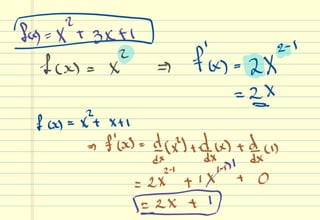 f(x) = x² + 3x + 1
f(x) = x² ⇒ f'(x) = 2x²⁻¹
= 2x
f(x) = x² + x + 1
⇒ f'(x) = d/dx (x²) + d/dx (x) + d/dx (1)
= 2x²⁻¹ + 1x¹⁻¹ + 0
= 2x + 1